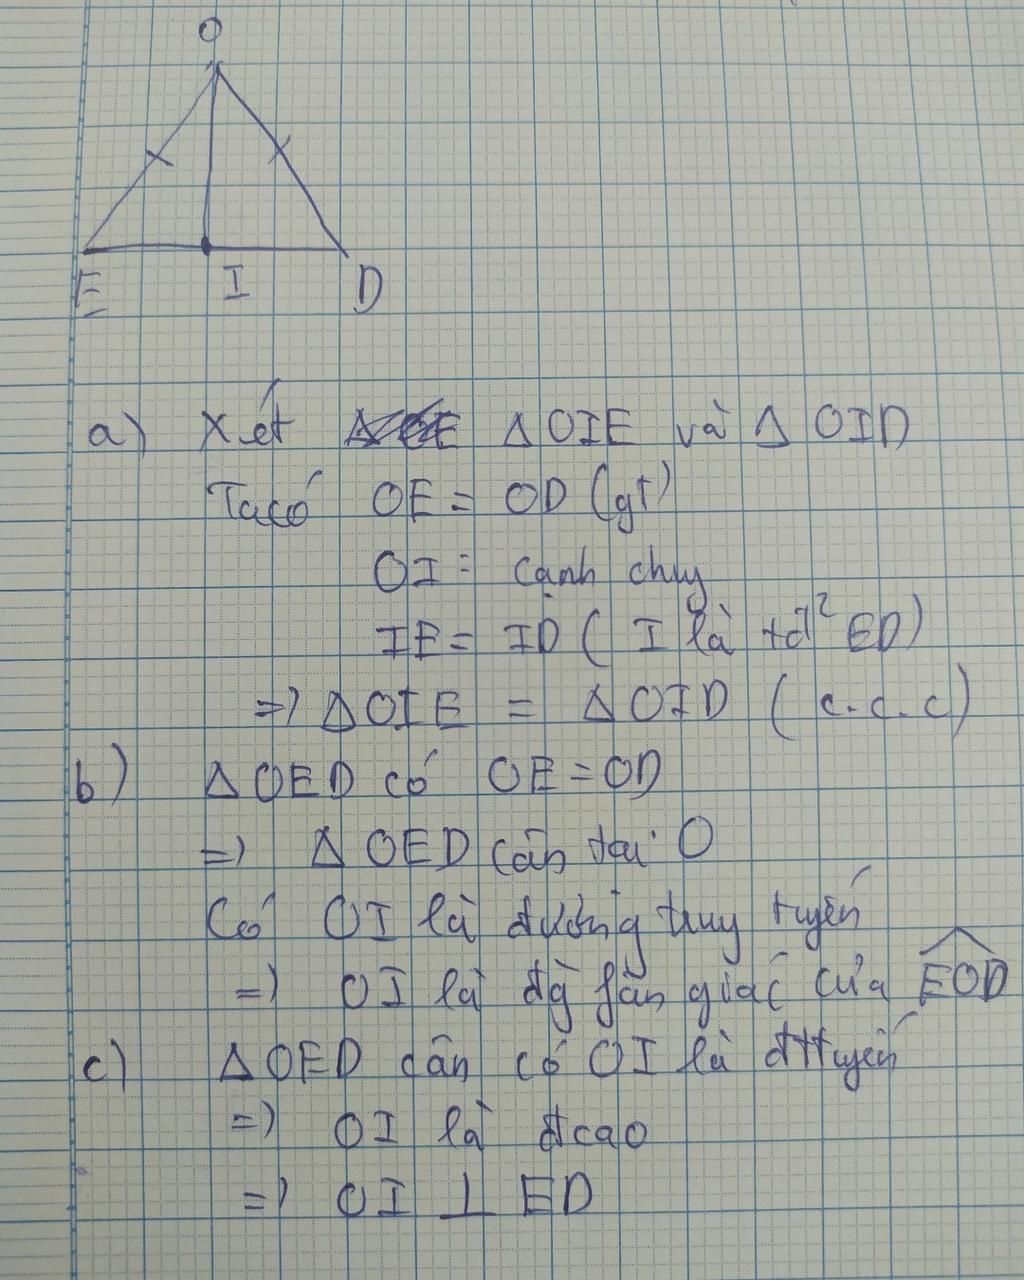 O
E I D
a) Xét Δ OIE và Δ OID
Ta có OE = OD (gt)
OI = cạnh chug
IE = ID ( I là tđ² ED)
=) Δ OIE = Δ OID ( c.c.c)
b) Δ OED có OE = OD
=) Δ OED cân tại O
Có OI là đường trug tuyến
=) OI là đg fân giác của EOD
c) Δ OED cân có OI là đttuyến
=) OI là đcao
=) OI ⊥ ED